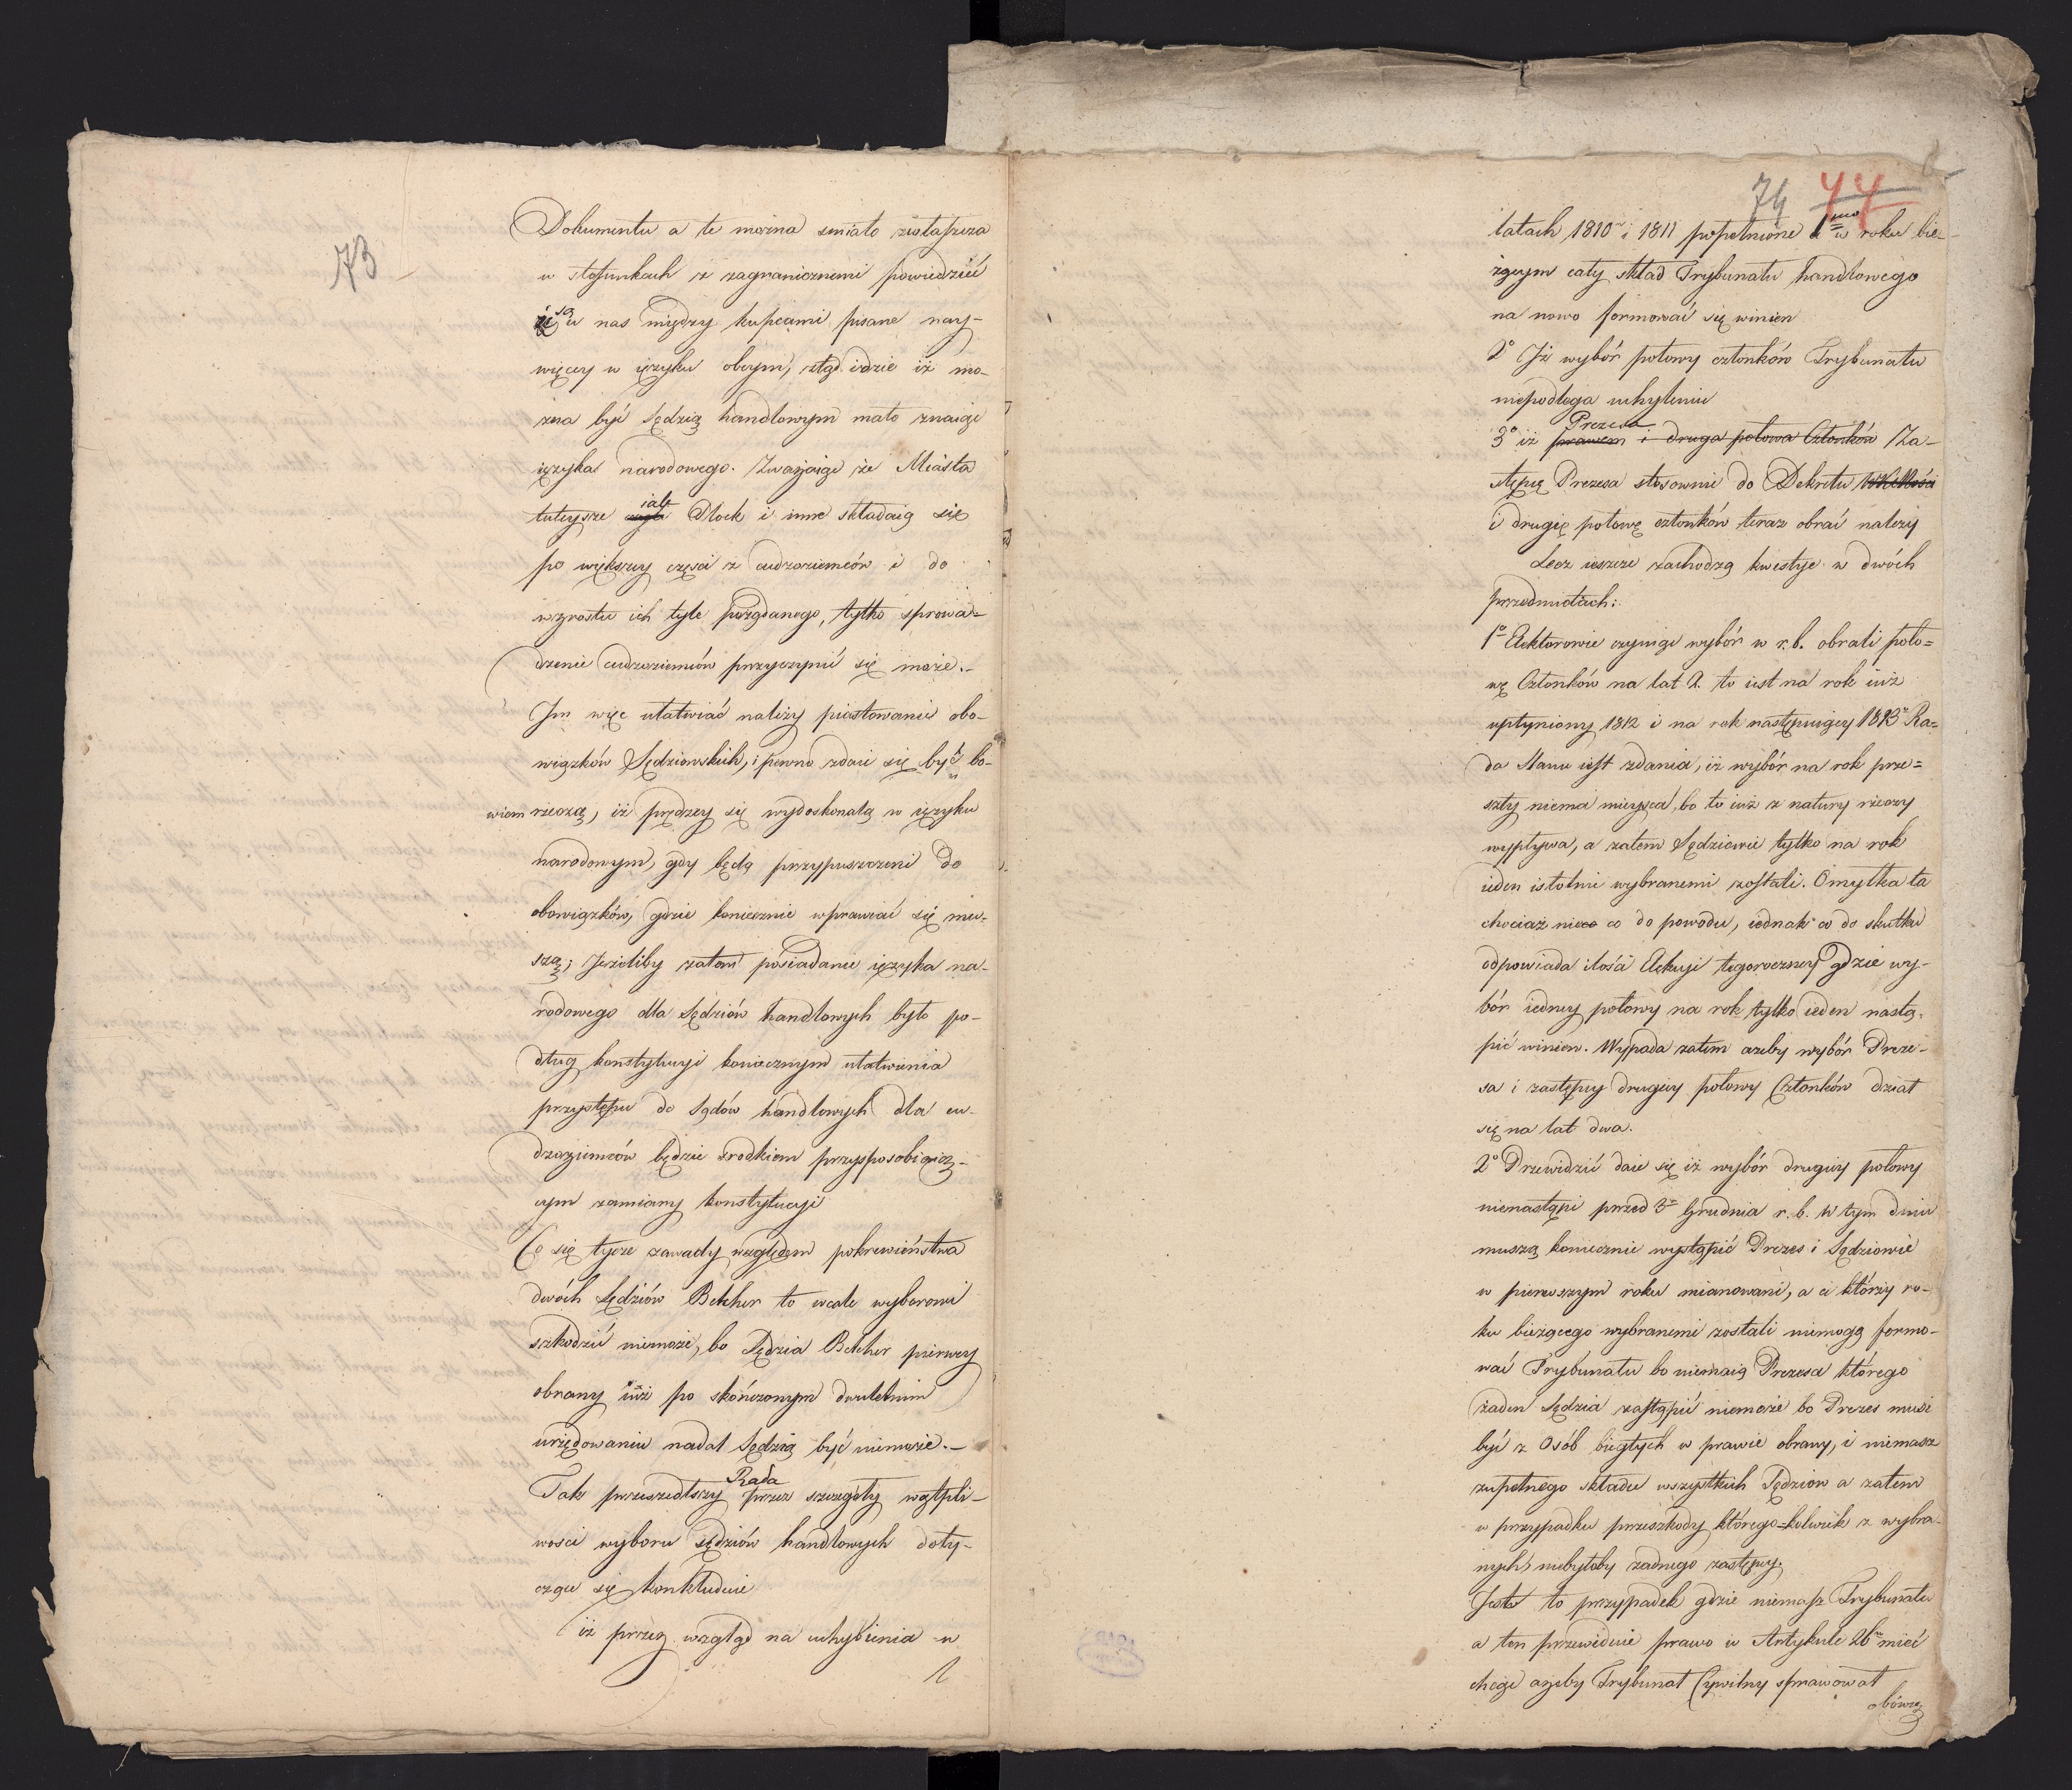 73
Dokumenta a te można smiało zwłaszcza
w stosunkach z zagranicznemi powiedzieć
iż są u nas między kupcami pisane nay-
więcey w ięzyku obcym, ztąd idzie iż mo-
żna być Sędzią handlowym mało znaiąc
ięzyka narodowego. Zważaiąc że Miasta
tuteysze iak Płock i inne składaią się
po większey części z cudzoziemców i do
wzrostu ich tyle pożądanego, tylko sprowa-
dzenie cudzoziemców przyczynić się może.-
Im więc ułatwiać należy piastowanie obo-
wiązków Sędziowskich, i pewno zdaie się być bo-
wiem rzeczą, iż prędzey się wydoskonalą w ięzyku
narodowym, gdy będą przypuszczeni do
obowiązków, gdzie koniecznie wprawiać się mu-
szą; Jeżeliby zatem posiadanie ięzyka na-
rodowego dla Sędziów handlowych było po-
dług konstytucyi koniecznym ułatwienia
przystępu do Sądów handlowych dla cu-
dzoziemców będzie srodkiem przysposobiaią-
cym zamiany konstytucyi
Co się tycze zawady względem pokrewieństwa
dwóch Sędziów Betcher to wcale wyborowi
szkodzić niemoże, bo Sędzia Betcher pierwey
obrany iuż po skończonym dwuletnim
urzędowaniu nadal Sędzią być niemoże.-
Tak przeszedłszy Rada przez szczegóły wątpli-
wosci wyboru Sędziów handlowych doty-
czące się konkluduie
iż przez wzgląd na uchybienia w
74 44
latach 1810 i 1811 popełnione 1mo w roku bie-
żącym cały skład Trybunału handlowego
na nowo formować się winien
2° Iż wybór połowy członków Trybunału
niepodlega uchyleniu
3° iż Prezesa prawem i druga połowa Członków Za-
stępcę Prezesa stosownie do Dekretu
i drugię połowę członków teraz obrać należy
Lecz ieszcze zachodzą kwestye w dwóch
przedmiotach:
1° Elektorowie czyniąc wybór w r.b. obrali poło-
wę Członków na lat 2. to iest na rok iuż
upłyniony 1812 i na rok następuiący 1813 Ra-
da Stanu iest zdania, iż wybór na rok prze-
szły niema mieysca, bo to iuż z natury rzeczy
wypływa, a zatem Sędziowie tylko na rok
ieden istotnie wybranemi zostali. Omyłka ta
chociaż nieco co do powodu, iednak co do skutku
odpowiada ilości Elekcyi tegoroczney gdzie wy-
bór iedney połowy na rok tylko ieden nastą-
pić winien. Wypada zatem ażeby wybór Preze-
sa i zastępcy drugiey połowy Członków dział
się na lat dwa.
2° Przewidzić daie się iż wybór drugiey połowy
nienastąpi przed 3 Grudnia r.b. W tym dniu
muszą koniecznie wystąpić Prezes i Sędziowie
w pierwszym roku mianowani, a ci którzy ro-
ku bieżącego wybranemi zostali niemogą formo-
wać Trybunału bo niemaią Prezesa którego
żaden Sędzia zastąpić niemoże bo Prezes musi
być z Osób biegłych w prawie obrany, i niemasz
zupełnego składu wszystkich Sędziow a zatem
w przypadku przeszkody którego-kolwiek z wybra-
nych, niebyłoby żadnego zastępcy.
Jestto to przypadek gdzie niemasz Trybunału
a ten przewiduie prawo w Artykule 26 mieć
chcąc ażeby Trybunał Cywilny sprawował
obowią